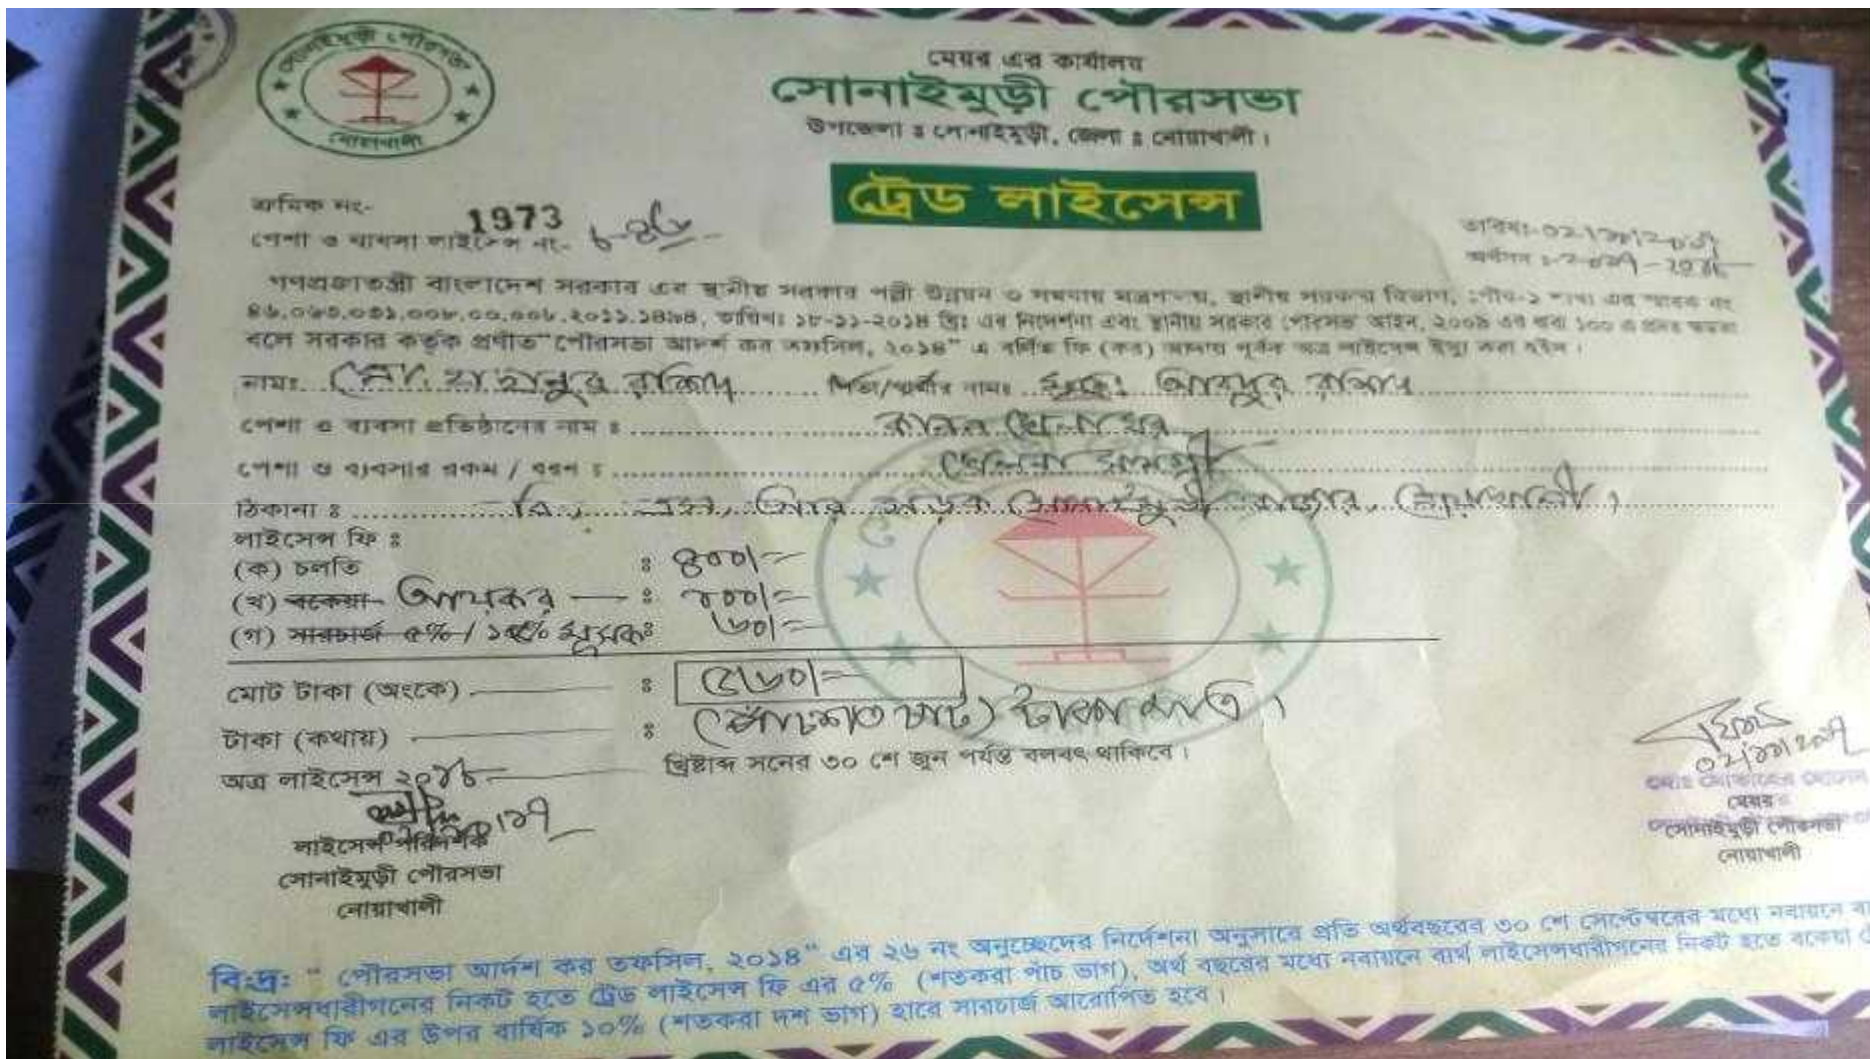 সোনাইমুড়ী পৌরসভা
নোয়াখালী
মেয়র এর কার্যালয়
সোনাইমুড়ী পৌরসভা
উপজেলা ঃ সোনাইমুড়ী, জেলা ঃ নোয়াখালী।
ট্রেড লাইসেন্স
ক্রমিক নং- 1973
পেশা ও ব্যবসা লাইসেন্স নং-
তারিখঃ-০২/১০/২০১৭
অর্থসন ঃ-২০১৭-২০১৮
গণপ্রজাতন্ত্রী বাংলাদেশ সরকার এর স্থানীয় সরকার পল্লী উন্নয়ন ও সমবায় মন্ত্রণালয়, স্থানীয় সরকার বিভাগ, পৌর-১ শাখা এর স্মারক নং
৪৬.০৬৩.০৩১.০০৮.০০.০০৮.২০১১.১৪৯৪, তারিখঃ ১৮-১১-২০১৪ খ্রিঃ এর নির্দেশনা এবং স্থানীয় সরকার পৌরসভা আইন, ২০০৯ এর ধারা ১০০ এ প্রদত্ত ক্ষমতা
বলে সরকার কর্তৃক প্রণীত "পৌরসভা আদর্শ কর তফসিল, ২০১৪" এ বর্ণিত ফি (কর) আদায় পূর্বক অত্র লাইসেন্স ইস্যু করা হইল।
নামঃ মো. হারুনুর রশিদ পিতা/স্বামীর নামঃ মৃতঃ আবদুর রশিদ
পেশা ও ব্যবসা প্রতিষ্ঠানের নাম ঃ কানন খেলাঘর
পেশা ও ব্যবসার রকম / ধরন ঃ খেলনা সামগ্রী
ঠিকানা ঃ বি, এল, আর সড়ক সোনাইমুড়ী বাজার, নোয়াখালী।
লাইসেন্স ফি ঃ
(ক) চলতি ঃ ৪০০/=
(খ) বকেয়া আয়কর ঃ ১০০/=
(গ) সারচার্জ ৫% / ১৫% মূসকঃ ৬০/=
মোট টাকা (অংকে) ঃ ৫৬০/=
টাকা (কথায়) ঃ (পাঁচশত ষাট) টাকা মাত্র।
অত্র লাইসেন্স ২০১৮ খ্রিষ্টাব্দ সনের ৩০ শে জুন পর্যন্ত বলবৎ থাকিবে।
০২/১০/১৭
লাইসেন্স পরিদর্শক
সোনাইমুড়ী পৌরসভা
নোয়াখালী
০২/১০/২০১৭
মেয়র
সোনাইমুড়ী পৌরসভা
নোয়াখালী
বি:দ্র: " পৌরসভা আর্দশ কর তফসিল, ২০১৪" এর ২৬ নং অনুচ্ছেদের নির্দেশনা অনুসারে প্রতি অর্থবছরের ৩০ শে সেপ্টেম্বরের মধ্যে নবায়নে
লাইসেন্সধারীগনের নিকট হতে ট্রেড লাইসেন্স ফি এর ৫% (শতকরা পাঁচ ভাগ), অর্থ বছরের মধ্যে নবায়নে ব্যর্থ লাইসেন্সধারীগনের নিকট হতে বকেয়া
লাইসেন্স ফি এর উপর বার্ষিক ১০% (শতকরা দশ ভাগ) হারে সারচার্জ আরোপিত হবে।